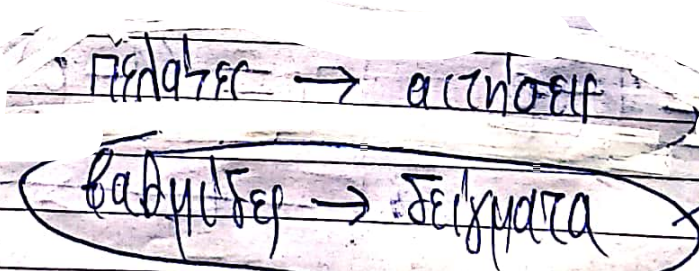 πελάτες → αιτήσεις
βαθμίδες → δείγματα